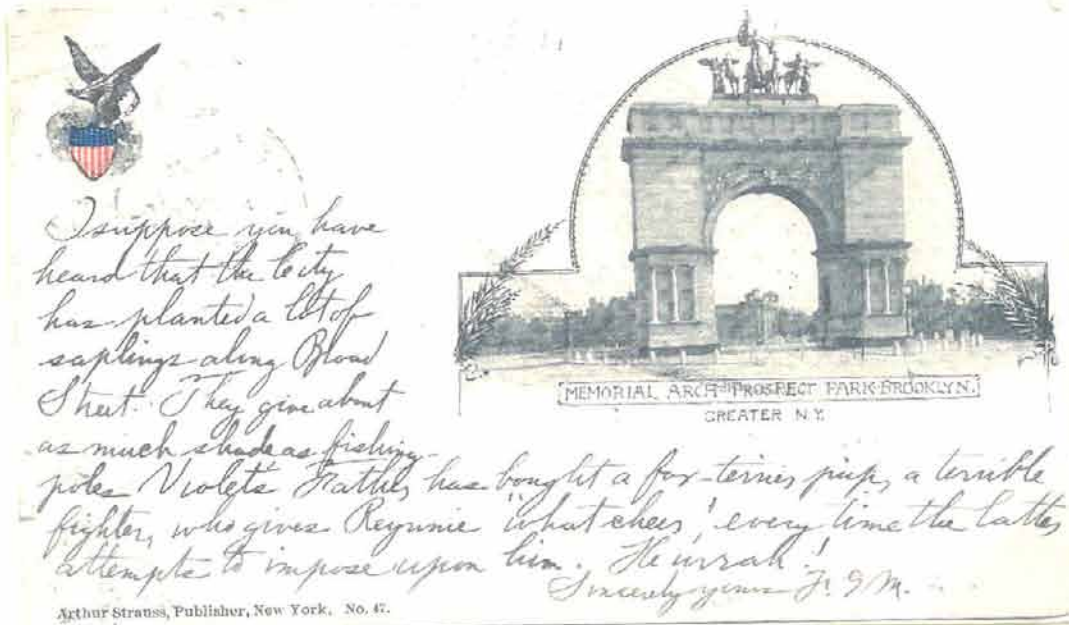 I suppose you have
heard that the City
has planted a lot of
saplings along Broad
Street. They give about
as much shade as fishing-
poles Violet's Father has bought a fox-terrier pup, a terrible
fighter, who gives "what cheer" every time the latter
attempts to impose upon him. Hurrah!
Sincerely yours F. G. M.
MEMORIAL ARCH PROSPECT PARK BROOKLYN.
GREATER N.Y.
Arthur Strauss, Publisher, New York. No. 47.